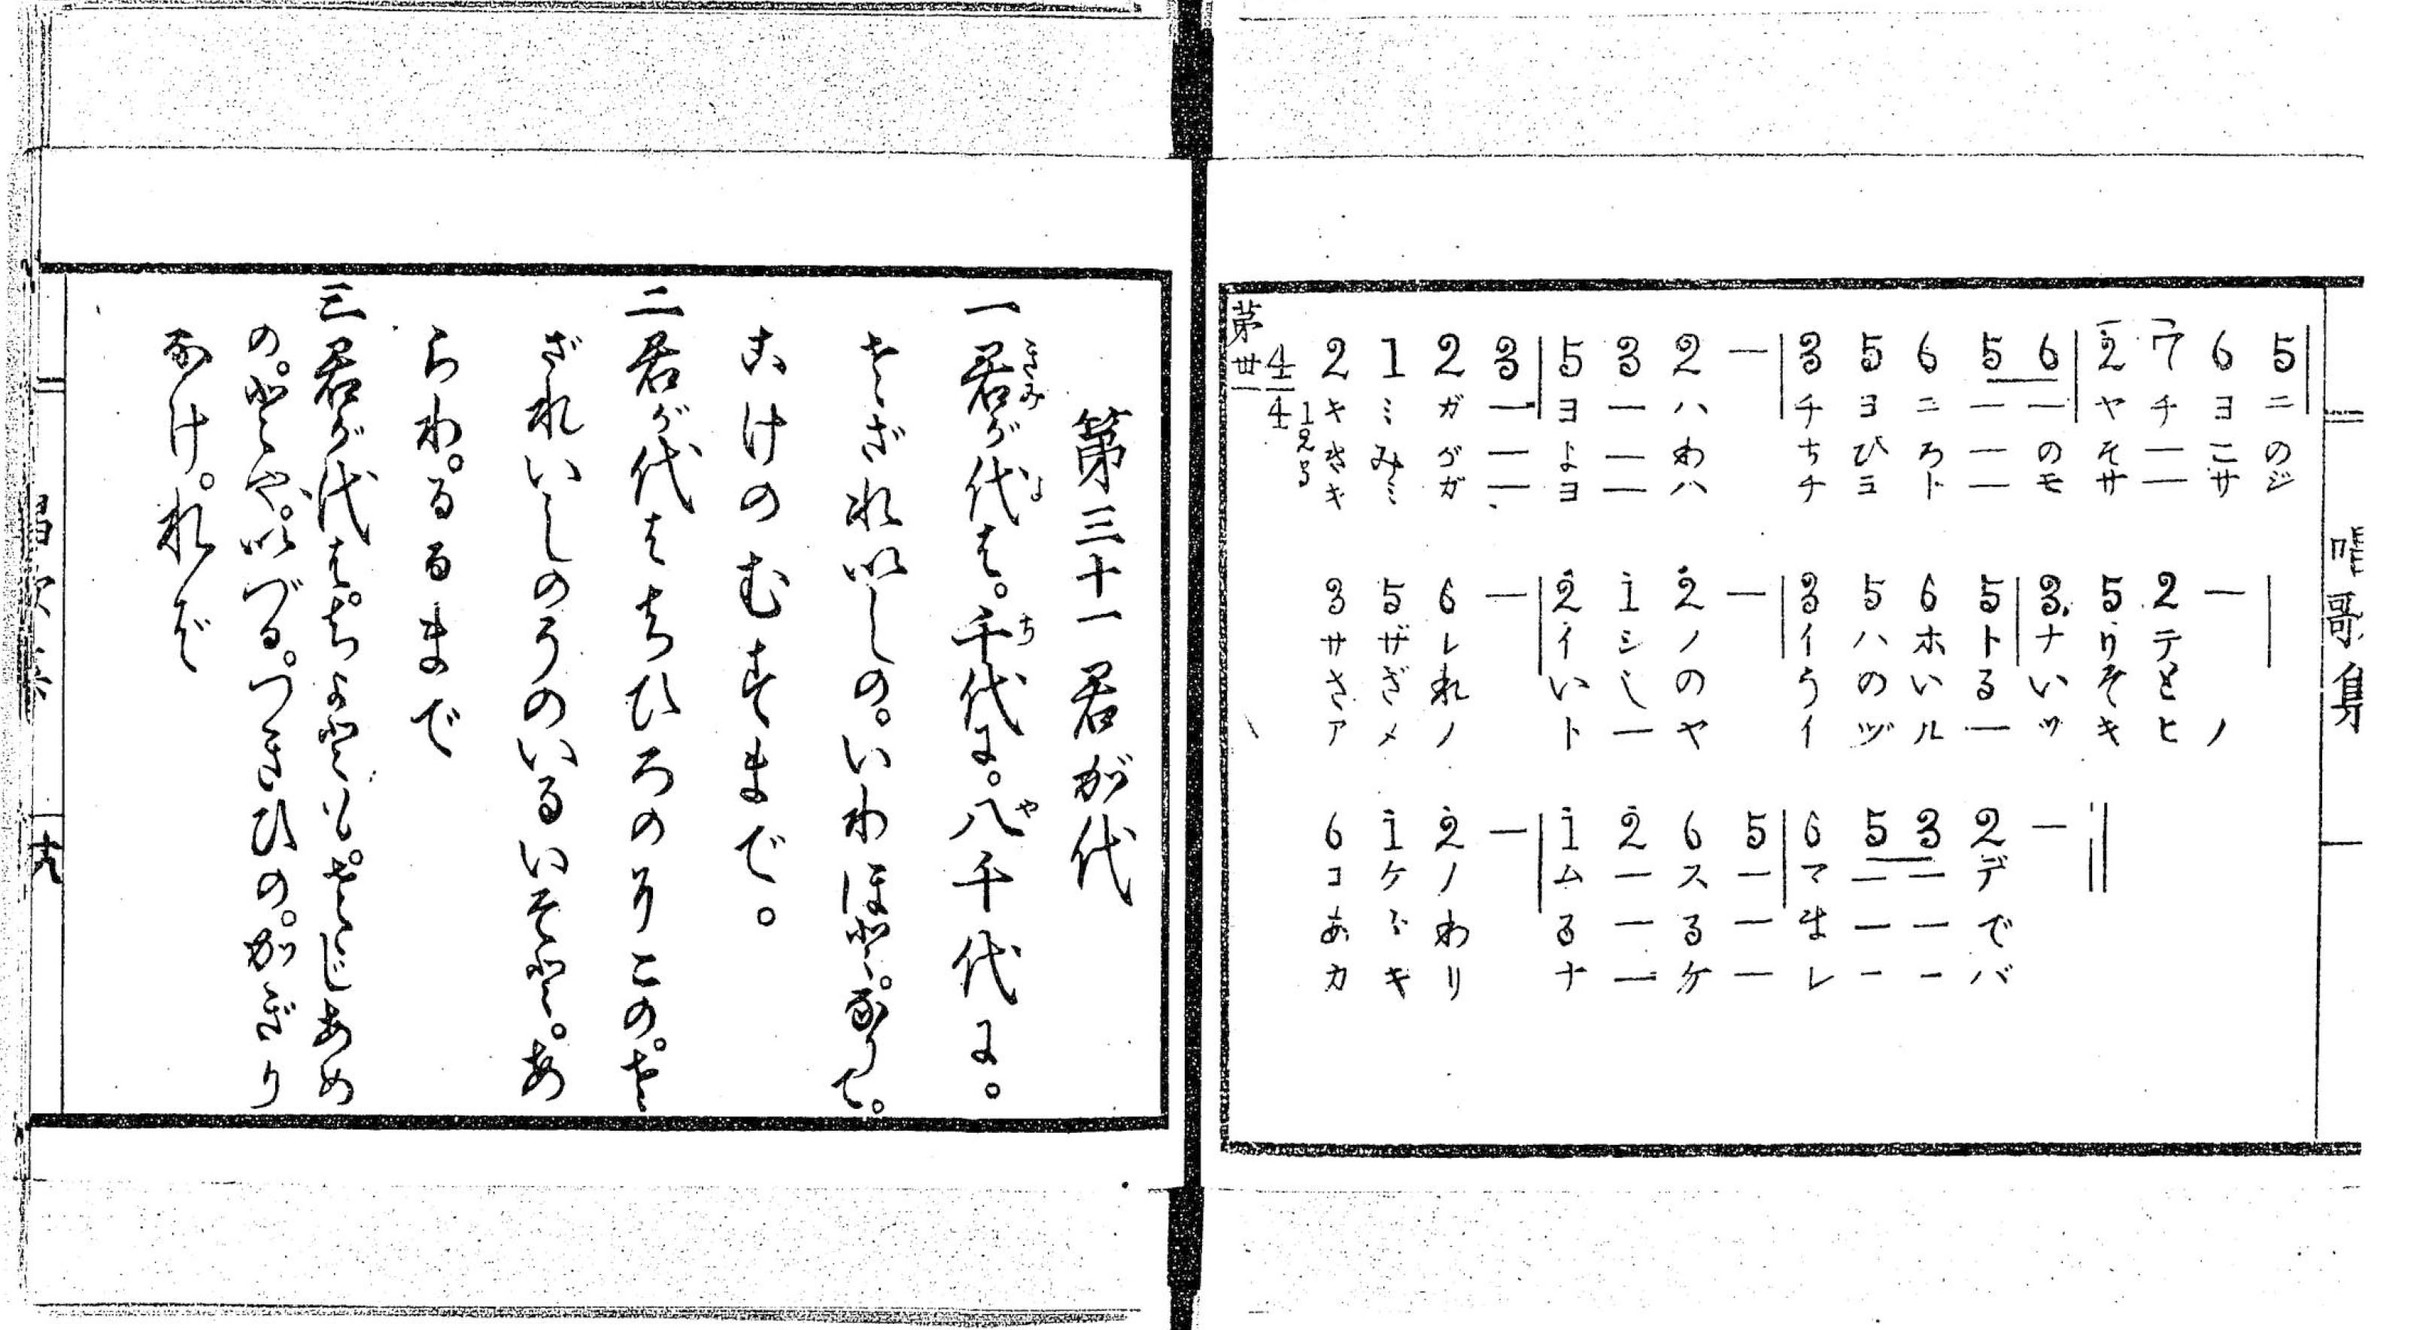 唱歌集
第卅一
4/4
2 1 2 3 | 5 3 2 — | 3 5 6 5 6 | 2 7 6 5 |
キ ミ ガ ー ヨ ー ハ チ ヨ ニ ー ー ヤ チ ヨ ニ
き み が ー よ ー わ ち ひ ろ ー の そ ー こ の
キ ミ ガ ー ヨ ー ハ チ ヨ ト ー モ サ ー サ ジ
3 5 6 — | 2 1 2 — | 3 5 6 5 | 3. 5 2 — |
サ ザ レ イ シ ノ イ ハ ホ ト ナ リ テ
さ ざ れ い し の う の い る い そ と
ア メ ノ ト ー ヤ イ ヅ ル ー ツ キ ヒ ノ
6 1 2 — | 1 2 6 5 | 6 5 3 2 — ||
コ ケ ノ ム ー ス ー マ ー ー デ
あ ら わ る ー る ー ま ー ー で
カ ギ リ ナ ー ケ ー レ ー ー バ
第三十一 君が代
一 君が代は。千代に。八千代に。
さゞれいしの。いわほと。なりて。
こけのむすまで。
二 君が代はちひろのそこの。さ
ざれいしのうのいるいそと。あ
らわ。るるまで
三 君が代は。ちよとも。さゝじあめ
の。とや。いづる。つきひの。かぎり
なけ。れば
十九